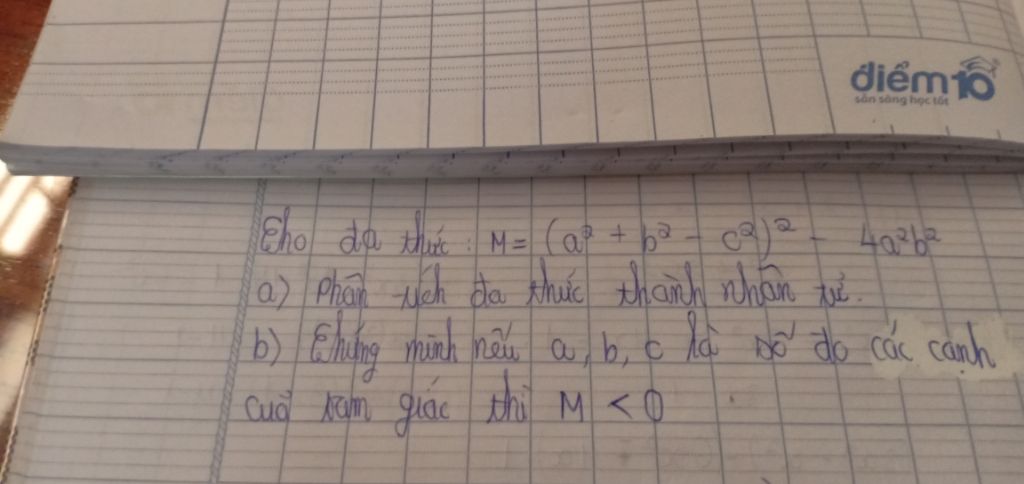 điểm10
sẵn sàng học tốt
Cho đa thức: M = (a² + b² - c²)² - 4a²b²
a) Phân tích đa thức thành nhân tử.
b) Chứng minh nếu a, b, c là số đo các cạnh
cuả tam giác thì M < 0